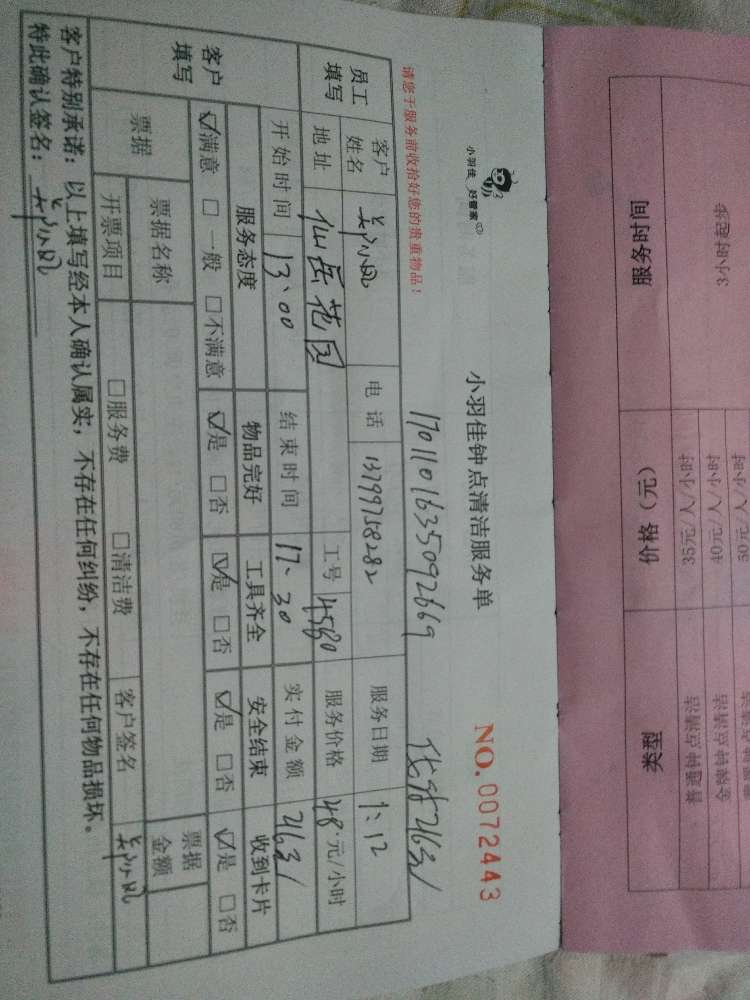 小羽佳 好管家
小羽佳钟点清洁服务单
NO.0072443
1701101635092669
请您于服务前收拾好您的贵重物品！
员工填写
客户姓名
电话 13799758282
服务日期 1.12
地址 仙岳花园
工号 4580
服务价格 48.元/小时
客户填写
开始时间 13:00
结束时间 17:30
实付金额 2631
服务态度 物品完好 工具齐全 安全结束 收到卡片
☑满意 □一般 □不满意 ☑是 □否 ☑是 □否 ☑是 □否 ☑是 □否
票据
票据名称
票据金额
开票项目 □服务费 □清洁费 客户签名
客户特别承诺：以上填写经本人确认属实，不存在任何纠纷，不存在任何物品损坏。
特此确认签名：
服务时间 价格（元） 类型
3小时起步
35元/人/小时 普通钟点清洁
40元/人/小时 金牌钟点清洁
50元/人/小时